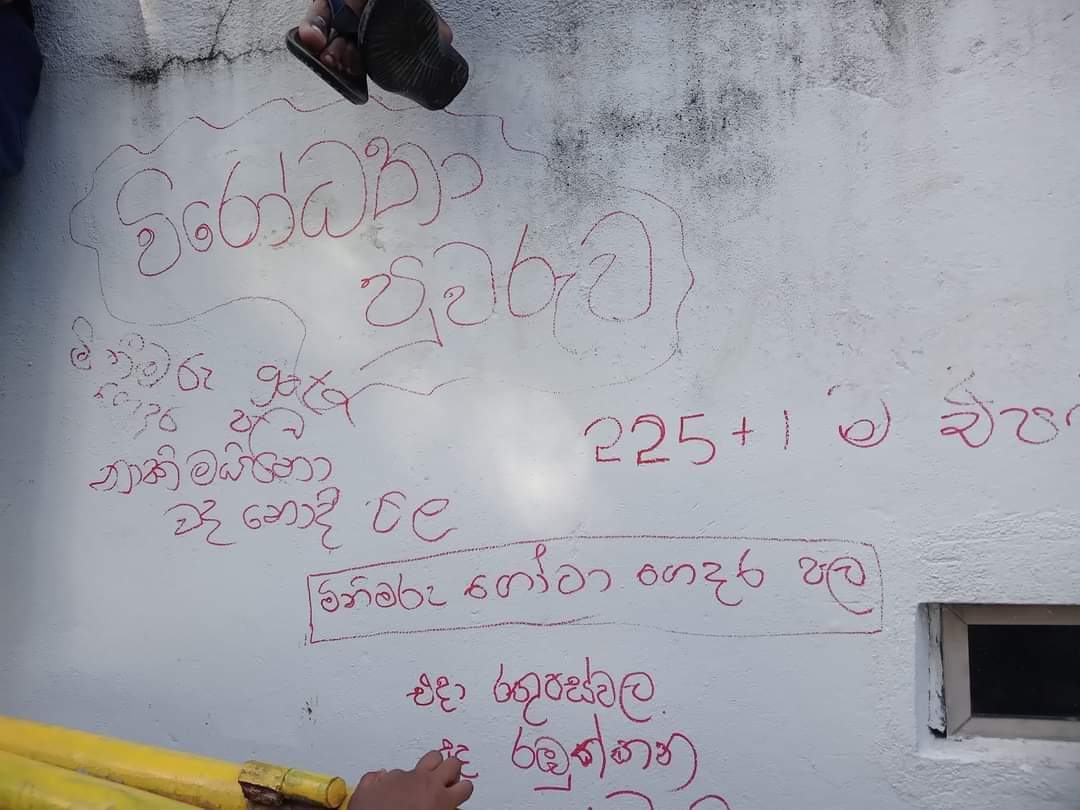 විරෝධතා
පුවරුව
මිනීමරු
ගෙදර පල
නාකි මයිනො
වද නොදී පල
225+1 ම එපා
මිනිමරු ගෝටා ගෙදර පල
එදා රතුපස්වල
අද රඹුක්කන